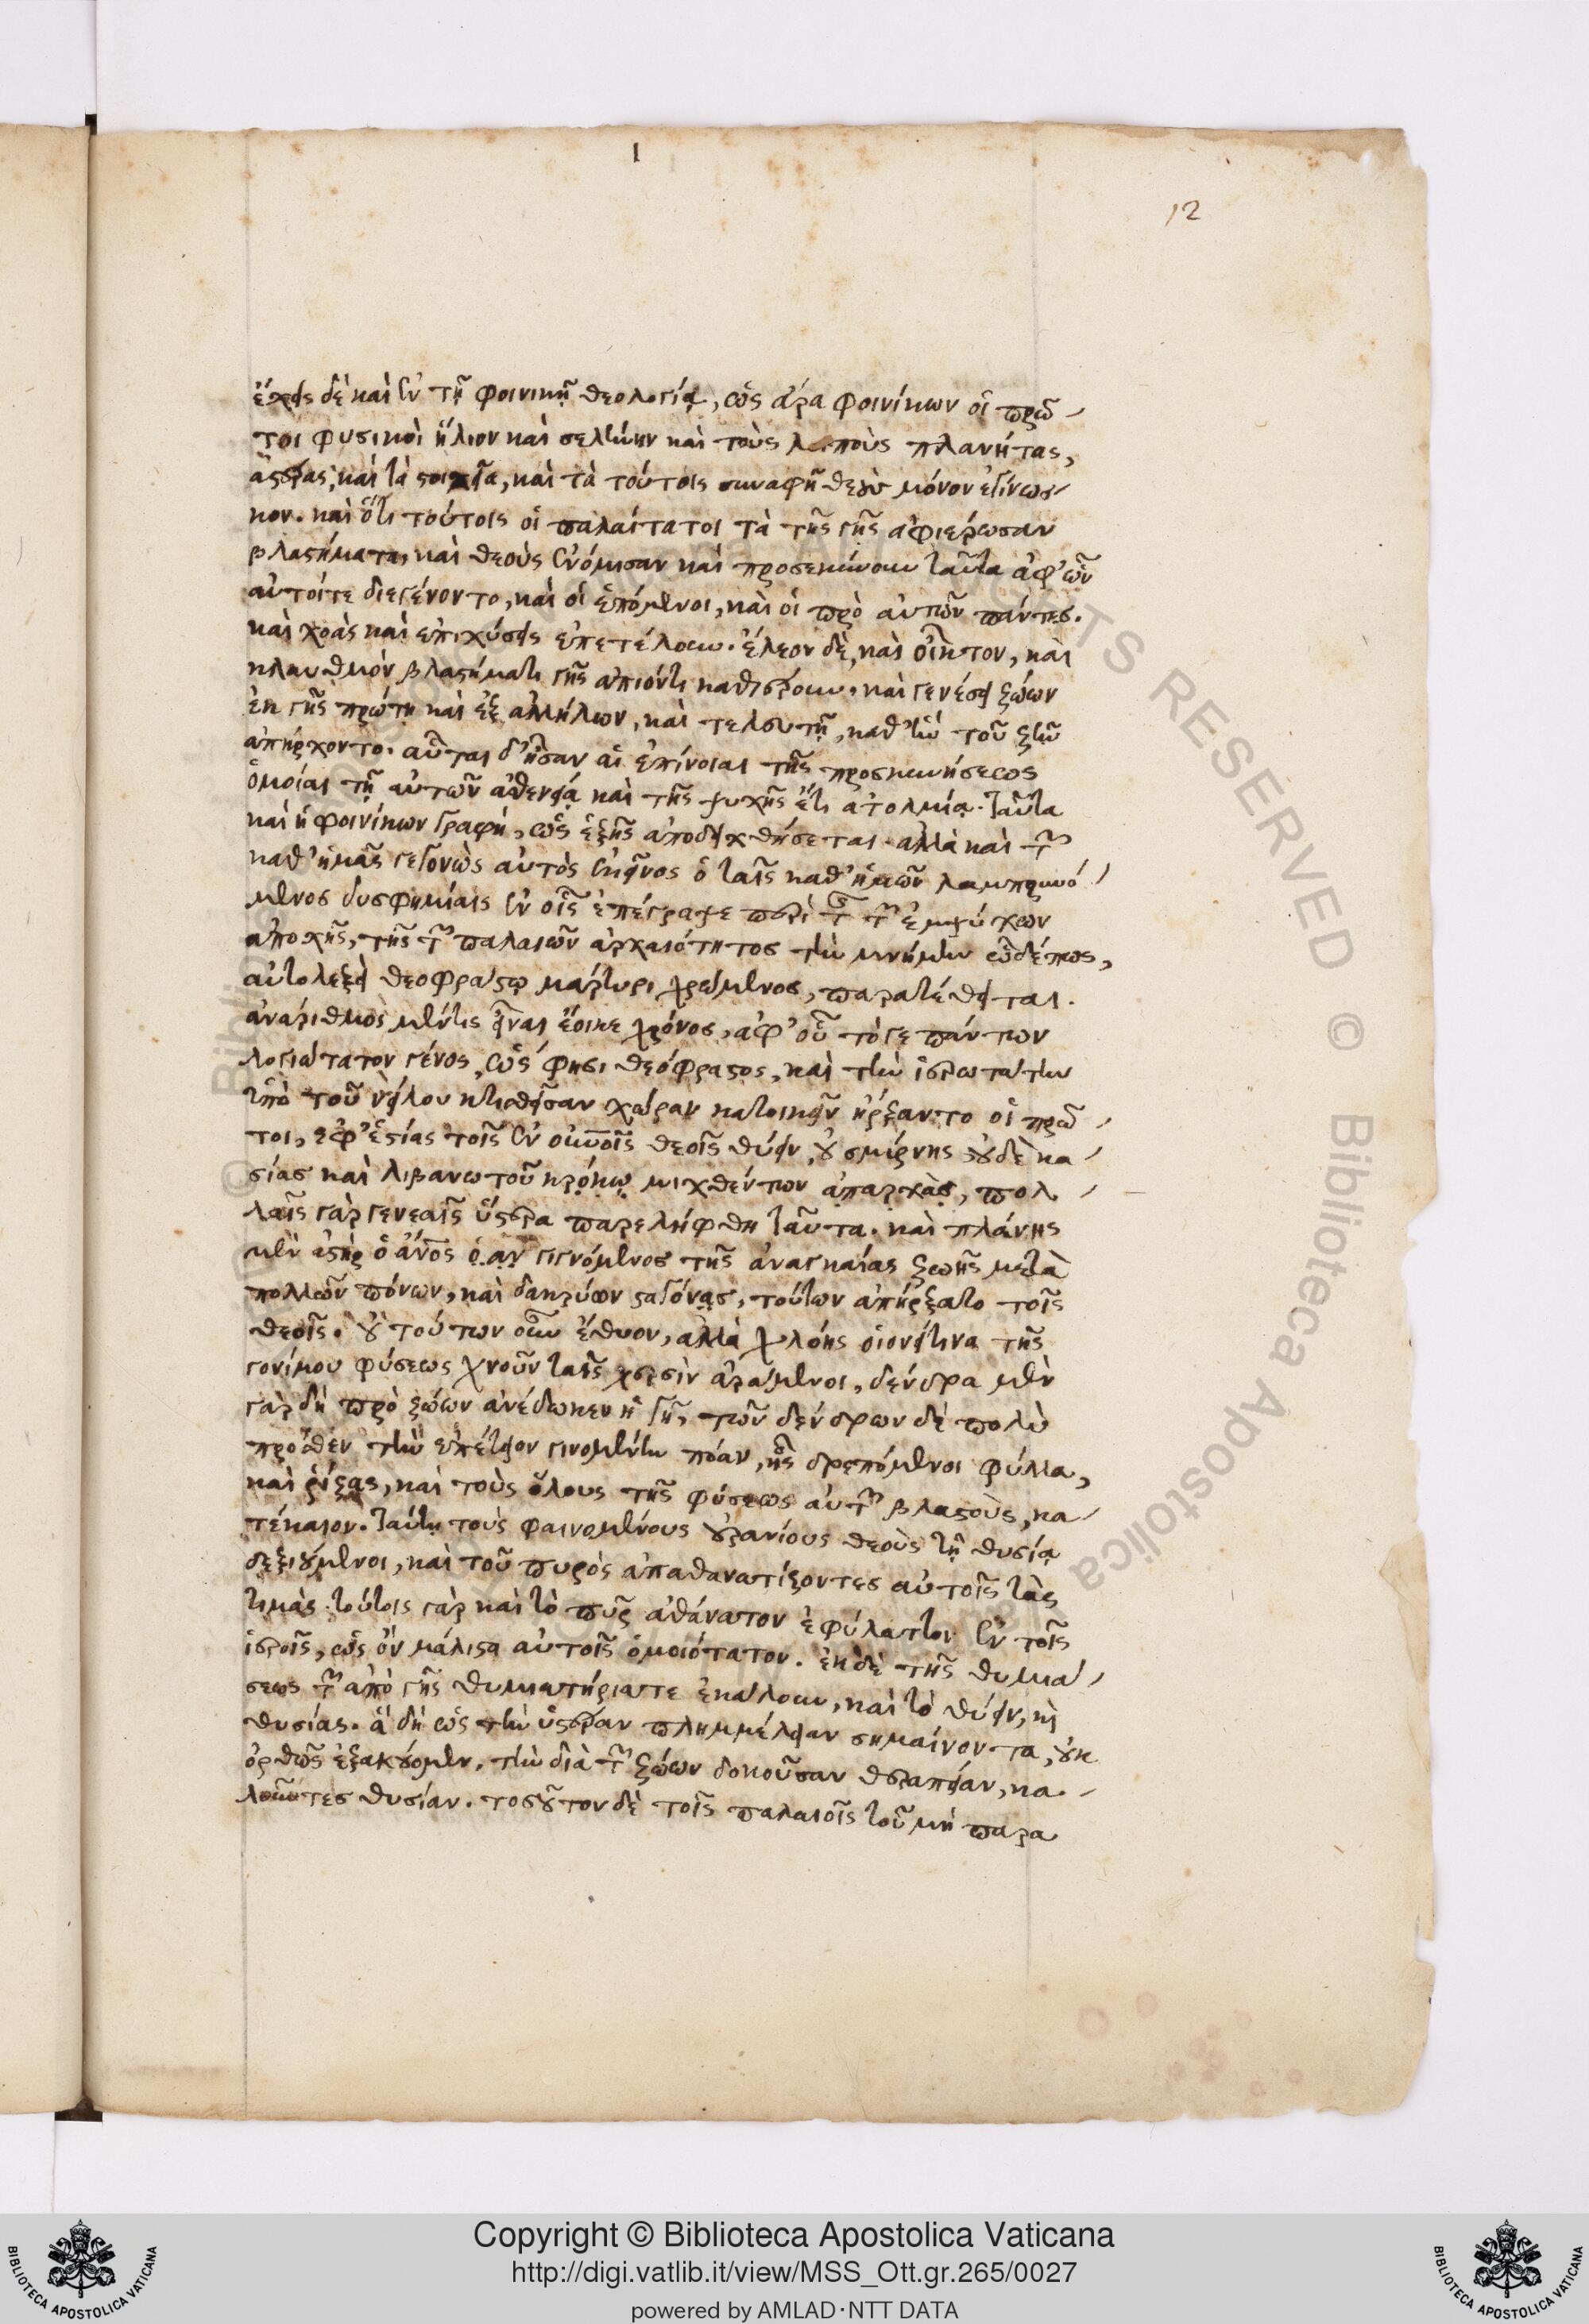 I
12
ἔχεις δὲ καὶ ἐν τῇ φοινικῇ θεολογίᾳ, ὡς ἄρα φοινίκων οἱ πρῶ
τοι φυσικοὶ ἥλιον καὶ σελήνην καὶ τοὺς λοιποὺς πλανήτας,
ἀστέρας, καὶ τὰ στοιχεῖα, καὶ τὰ τούτοις συναφῆ θεοὺς μόνον ἐγίνωσ
κον. καὶ ὅτι τούτοις οἱ παλαίτατοι τὰ τῆς γῆς ἀφιέρωσαν
βλαστήματα, καὶ θεοὺς ἐνόμισαν καὶ προσεκύνουν ταῦτα ἀφ' ὧν
αὐτοίτε διεγένοντο, καὶ οἱ ἑπόμενοι, καὶ οἱ πρὸ αὐτῶν πάντες.
καὶ χοὰς καὶ ἐπιχύσεις ἐπετέλουν. ἔλεον δὲ, καὶ οἶκτον, καὶ
κλαυθμὸν βλαστήματι γῆς ἀπιόντι καθιέρουν. καὶ γενέσει ζώων
ἐκ γῆς πρώτη καὶ ἐξ ἀλλήλων, καὶ τελευτῇ, καθ' ἣν τοῦ ζῆν
ἀπήρχοντο. αὗται δ' ἦσαν αἱ ἐπίνοιαι τῆς προσκυνήσεως
ὁμοίαι τῇ αὐτῶν ἀσθενείᾳ καὶ τῆς ψυχῆς ἔτι ἀτολμίᾳ. ταῦτα
καὶ ἡ φοινίκων γραφὴ, ὡς ἑξῆς ἀποδειχθήσεται. ἀλλὰ καὶ τῶν
καθ' ἡμᾶς γεγονὼς αὐτὸς ἐκεῖνος ὁ ταῖς καθ' ἡμῶν λαμπρυνό
μενος δυσφημίαις ἐν οἷς ἐπέγραψε περὶ τῆς τῶν ἐμψύχων
ἀποχῆς, τῆς τῶν παλαιῶν ἀρχαιότητος τὴν μνήμην ὧδέ πως,
αὐτολεξεὶ θεοφράστῳ μάρτυρι χρώμενος, παρατέθειται.
ἀνάριθμος μέντις εἶναι ἔοικε χρόνος, ἀφ' οὗ τόγε πάντων
λογιώτατον γένος, ὥς φησι θεόφραστος, καὶ τὴν ἱερωτάτην
ὑπὸ τοῦ νείλου κτισθεῖσαν χώραν κατοικεῖν ἤρξαντο οἱ πρῶ
τοι, ἀφ' ἑστίας τοῖς ἐν οὐνοῖς θεοῖς θύειν, οὐ σμίρνης οὐδὲ κα
σίας καὶ λιβανωτοῦ κρόκῳ μιχθέντων ἀπαρχὰς, πολ
λαῖς γὰρ γενεαῖς ὕστερα παρελήφθη ταῦτα. καὶ πλάνης
μὲν ἀστὴρ ὁ ἄνος ὁ ἂν γιγνόμενος τῆς ἀναγκαίας ζωῆς μετὰ
πολλῶν πόνων, καὶ δακρύων σταγόνας, τούτων ἀπήρξατο τοῖς
θεοῖς. οὐ τούτων οὖν ἔθυον, ἀλλὰ χλόης οἱονείτινα τῆς
γονίμου φύσεως χνοῦν ταῖς χερσὶν ἀράμενοι, δένδρα μὲν
γὰρ δὴ πρὸ ζώων ἀνέδωκεν ἡ γῆ, τῶν δένδρων δὲ πολὺ
πρόσθεν τὴν ἐπέτειον γινομένην πόαν, ἧς δρεπόμενοι φύλλα,
καὶ ῥίζας, καὶ τοὺς ὅλους τῆς φύσεως αὐτῶν βλαστοὺς, κα
τέκαιον. ταύτῃ τοὺς φαινομένους οὐρανίους θεοὺς τῇ θυσίᾳ
δεξιούμενοι, καὶ τοῦ πυρὸς ἀπαθανατίζοντες αὐτοῖς τὰς
τιμὰς. τούτοις γὰρ καὶ τὸ πῦρ ἀθάνατον ἐφύλαττον ἐν τοῖς
ἱεροῖς, ὡς ὂν μάλιστα αὐτοῖς ὁμοιότατον. ἐκ δὲ τῆς θυμιά
σεως τῶν ἀπὸ γῆς θυμιατήριατε ἐκάλουν, καὶ τὸ θύειν, κὶ
θυσίας. ἃ δὴ ὡς τὴν ὑστέραν πλημμέλειαν σημαίνοντα, οὐκ
ὀρθῶς ἐξακούομεν. τὴν διὰ τῶν ζώων δοκοῦσαν θεραπείαν, κα
λοῦντες θυσίαν. τοσοῦτον δὲ τοῖς παλαιοῖς τοῦ μὴ παρα
Copyright © Biblioteca Apostolica Vaticana
http://digi.vatlib.it/view/MSS_Ott.gr.265/0027
powered by AMLAD·NTT DATA